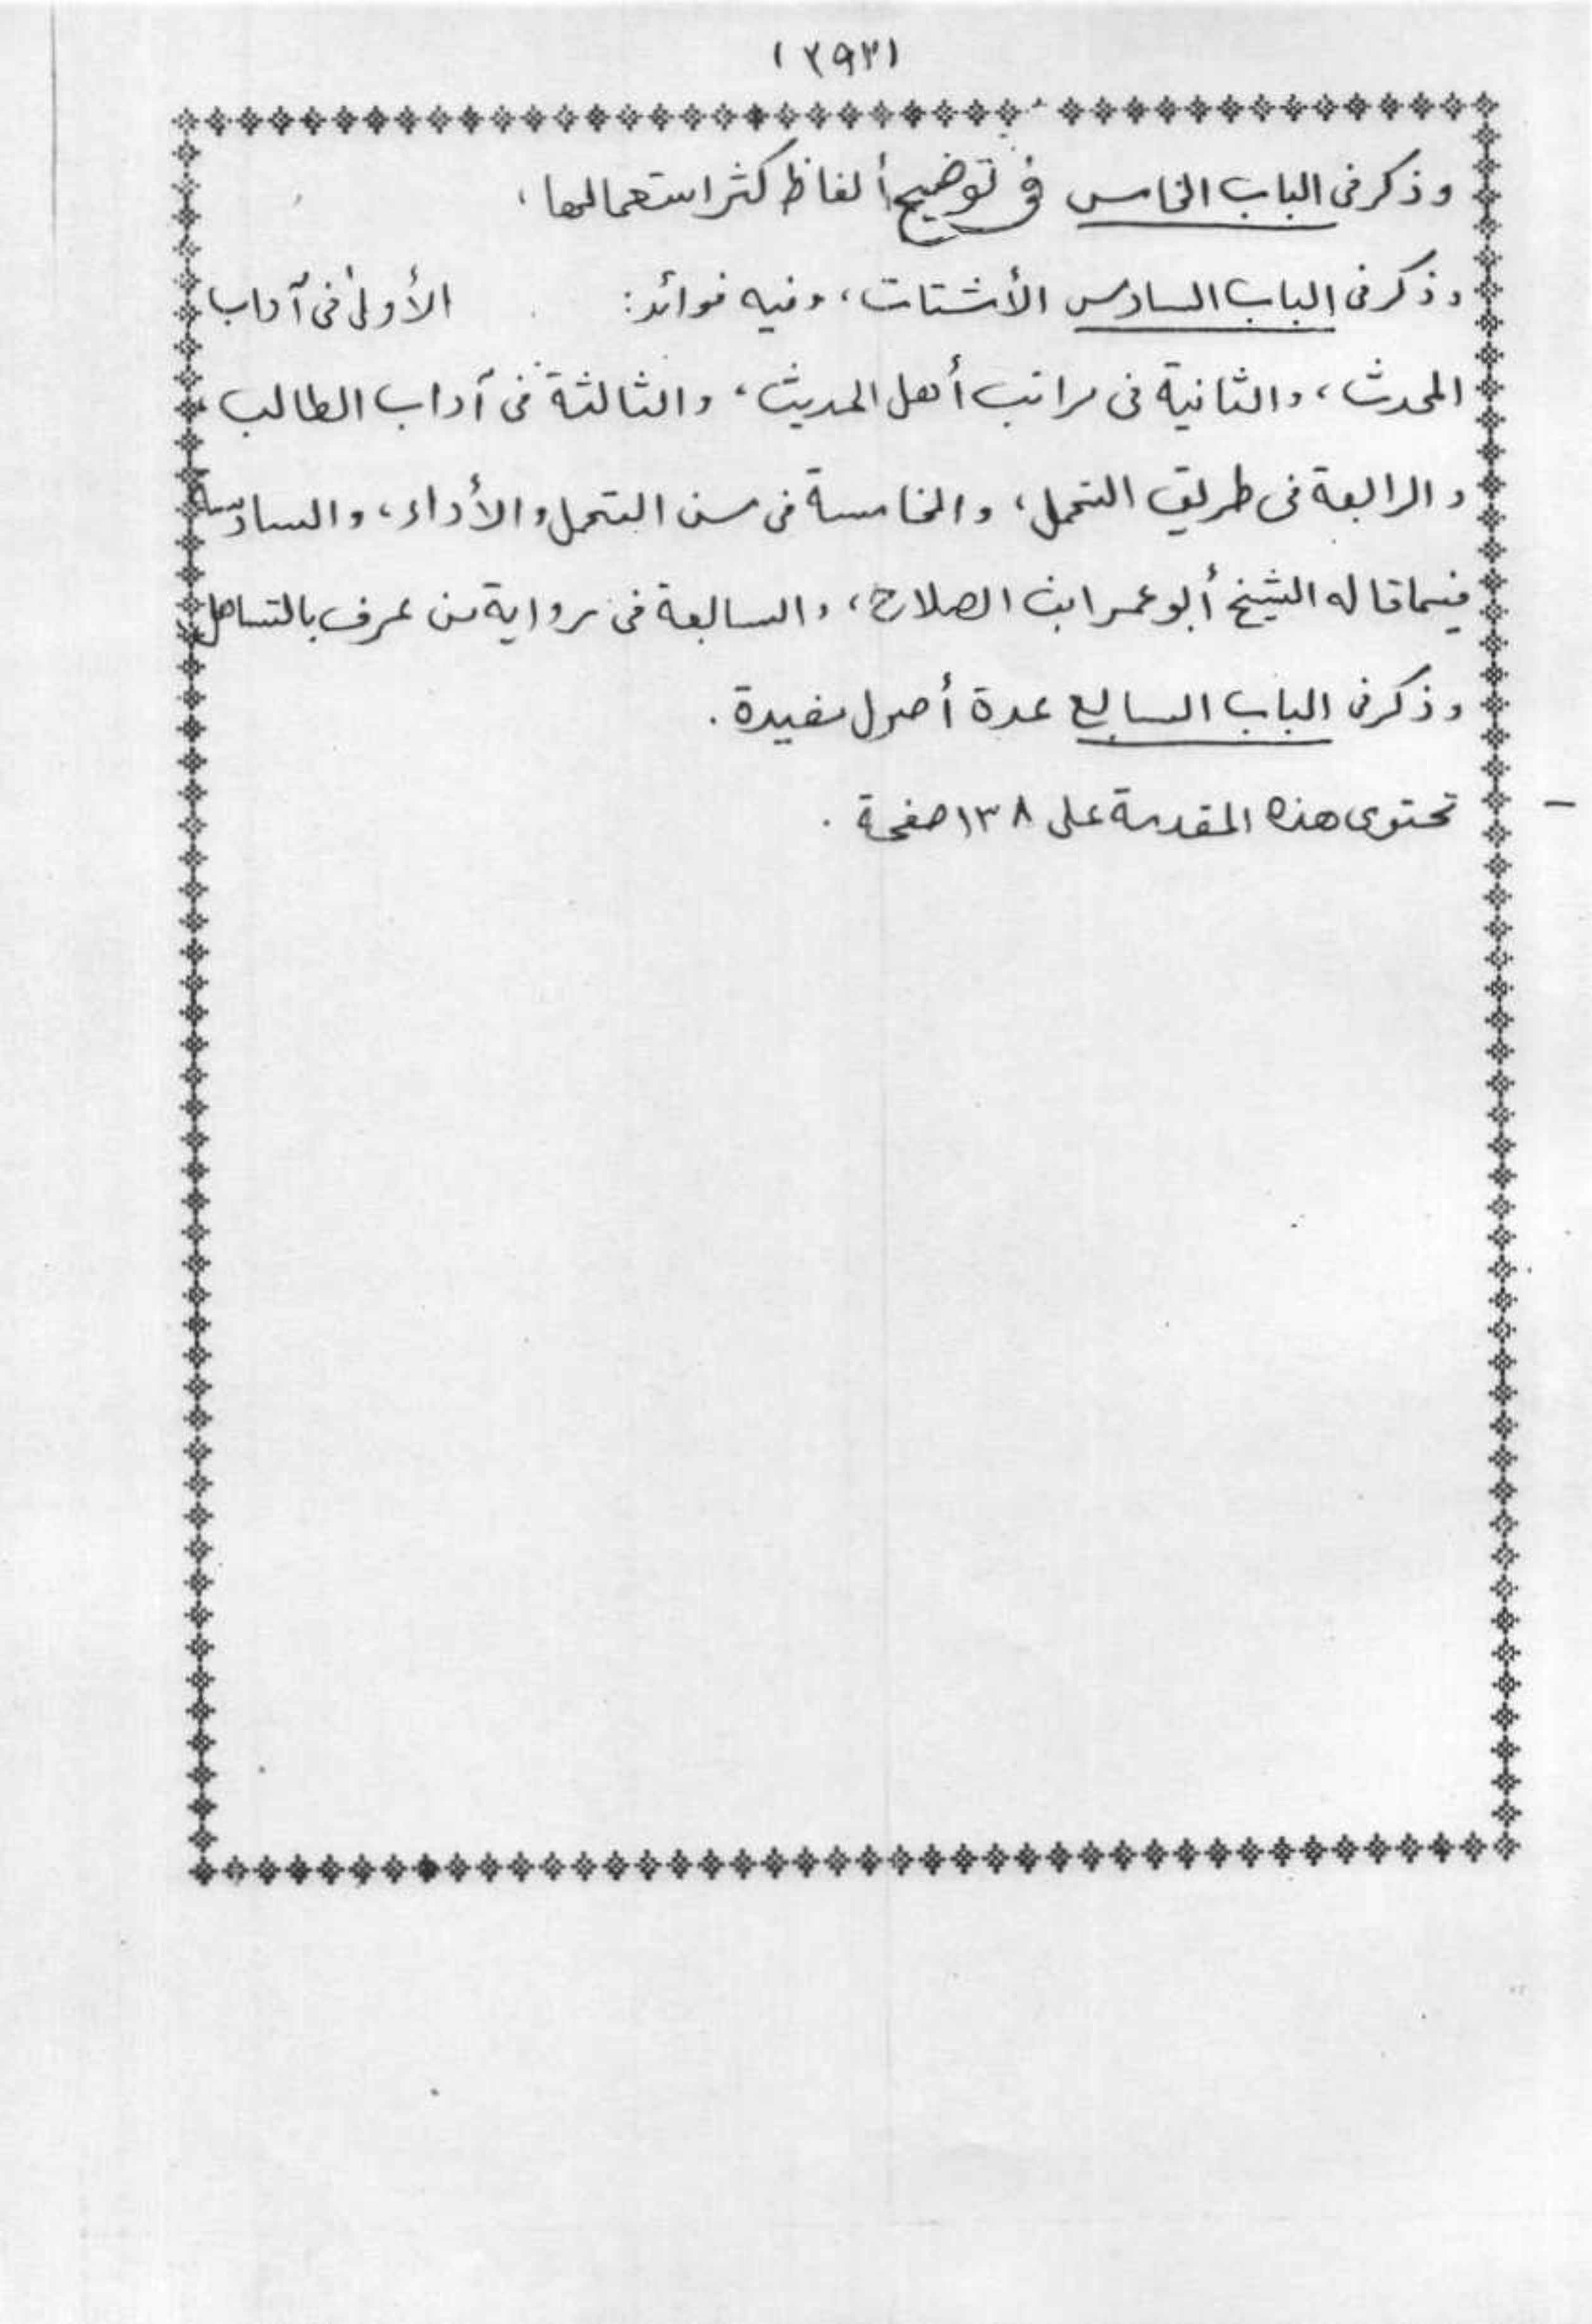 (٢٩٣)
وذكر فى الباب الخامس في توضيح ألفاظ كثر استعمالها،
وذكر فى الباب السادس الأشتات، وفيه فوائد: الأولى فى آداب
المحدث، والثانية فى مراتب أهل الحديث، والثالثة فى آداب الطالب
والرابعة فى طريق التحمل، والخامسة فى سن التحمل والأداء، والسادسة
فيما قاله الشيخ أبو عمر ابن الصلاح، والسابعة فى رواية من عرف بالتساهل
وذكر فى الباب السابع عدة أصول مفيدة.
تحتوى هذه المقدمة على ١٣٨ صفحة.